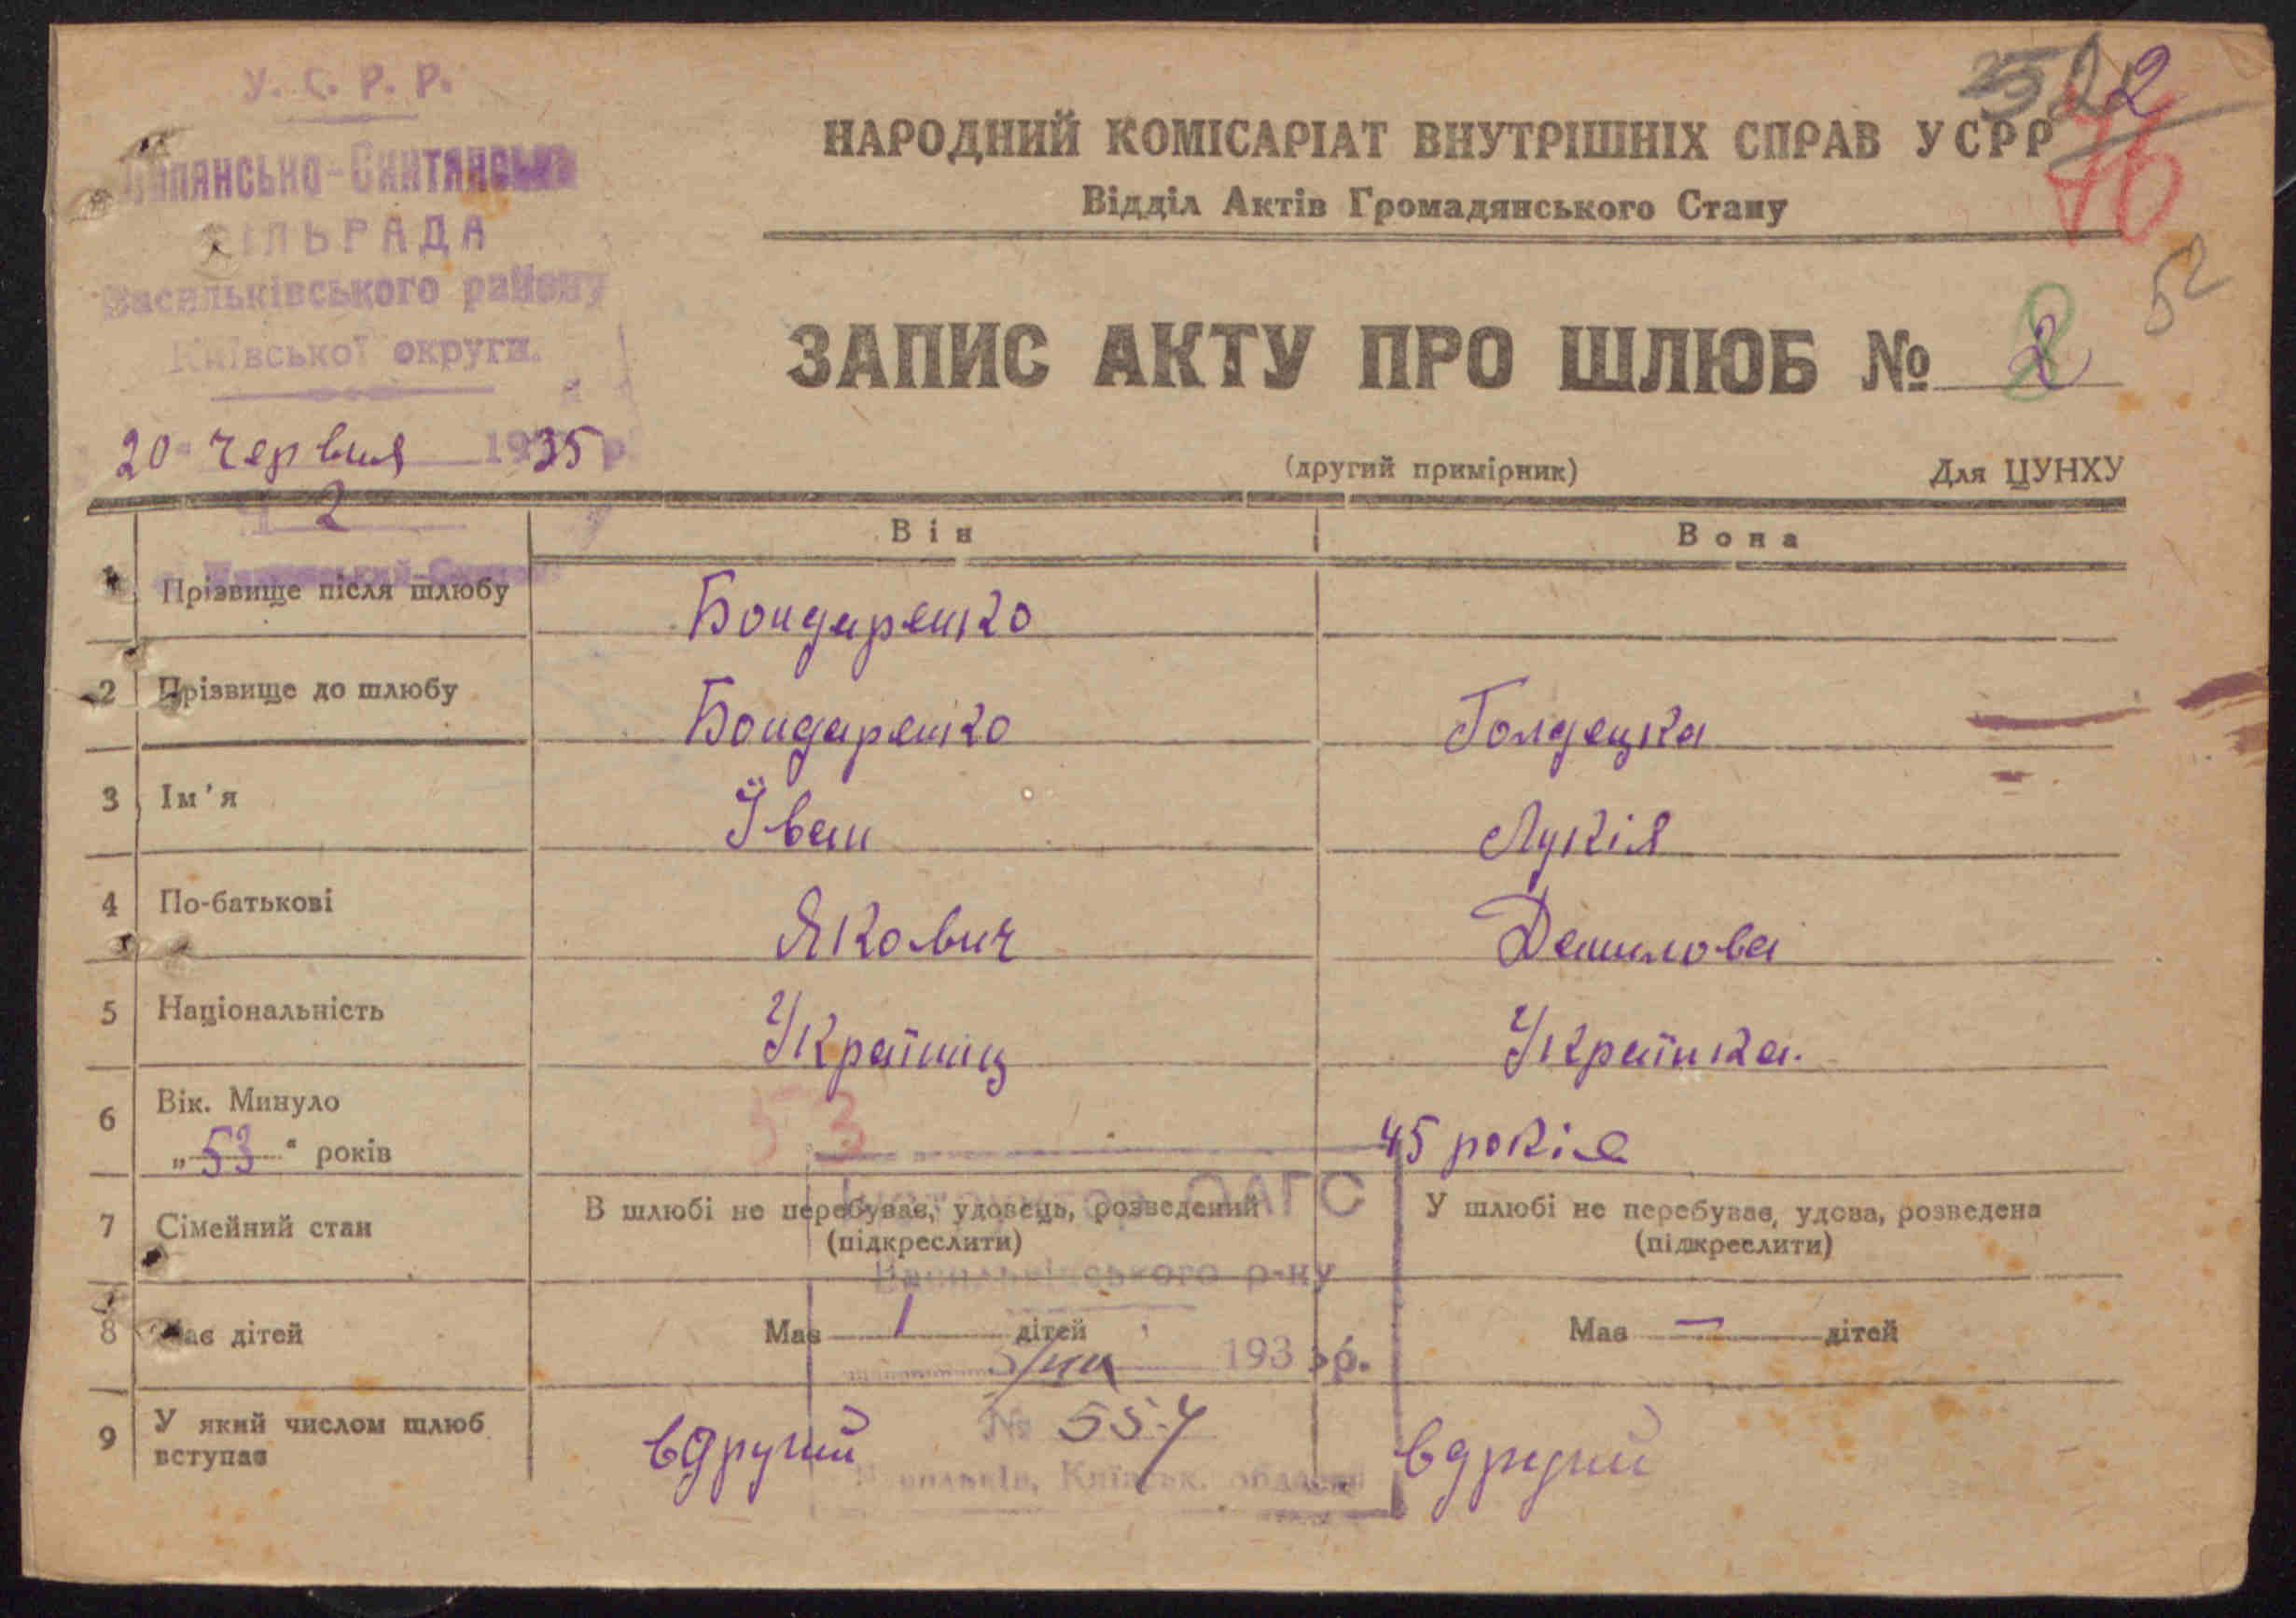 У. С. Р. Р.
СІЛЬРАДА
Васильківського району
Київської округи.
20 червня 1935 р.
Ч 2
522
76
52
НАРОДНИЙ КОМІСАРІАТ ВНУТРІШНІХ СПРАВ УСРР
Відділ Актів Громадянського Стану
ЗАПИС АКТУ ПРО ШЛЮБ № 2
(другий примірник) Для ЦУНХУ
Він Вона
1 Прізвище після шлюбу Бондаренко
2 Прізвище до шлюбу Бондаренко Голдецка
3 Ім'я Іван Лукія
4 По-батькові Якович Данилова
5 Національність Українец Українка.
6 Вік. Минуло 53 45 років
„53“ років
7 Сімейний стан В шлюбі не перебуває, удовець, розведений У шлюбі не перебуває, удова, розведена
(підкреслити) (підкреслити)
ОАГС
Васильківського р-ну
8 Має дітей Має 1 дітей Має — дітей
193 р.
№ 557
9 У який числом шлюб вдругий вдругий
вступає
Київськ. області